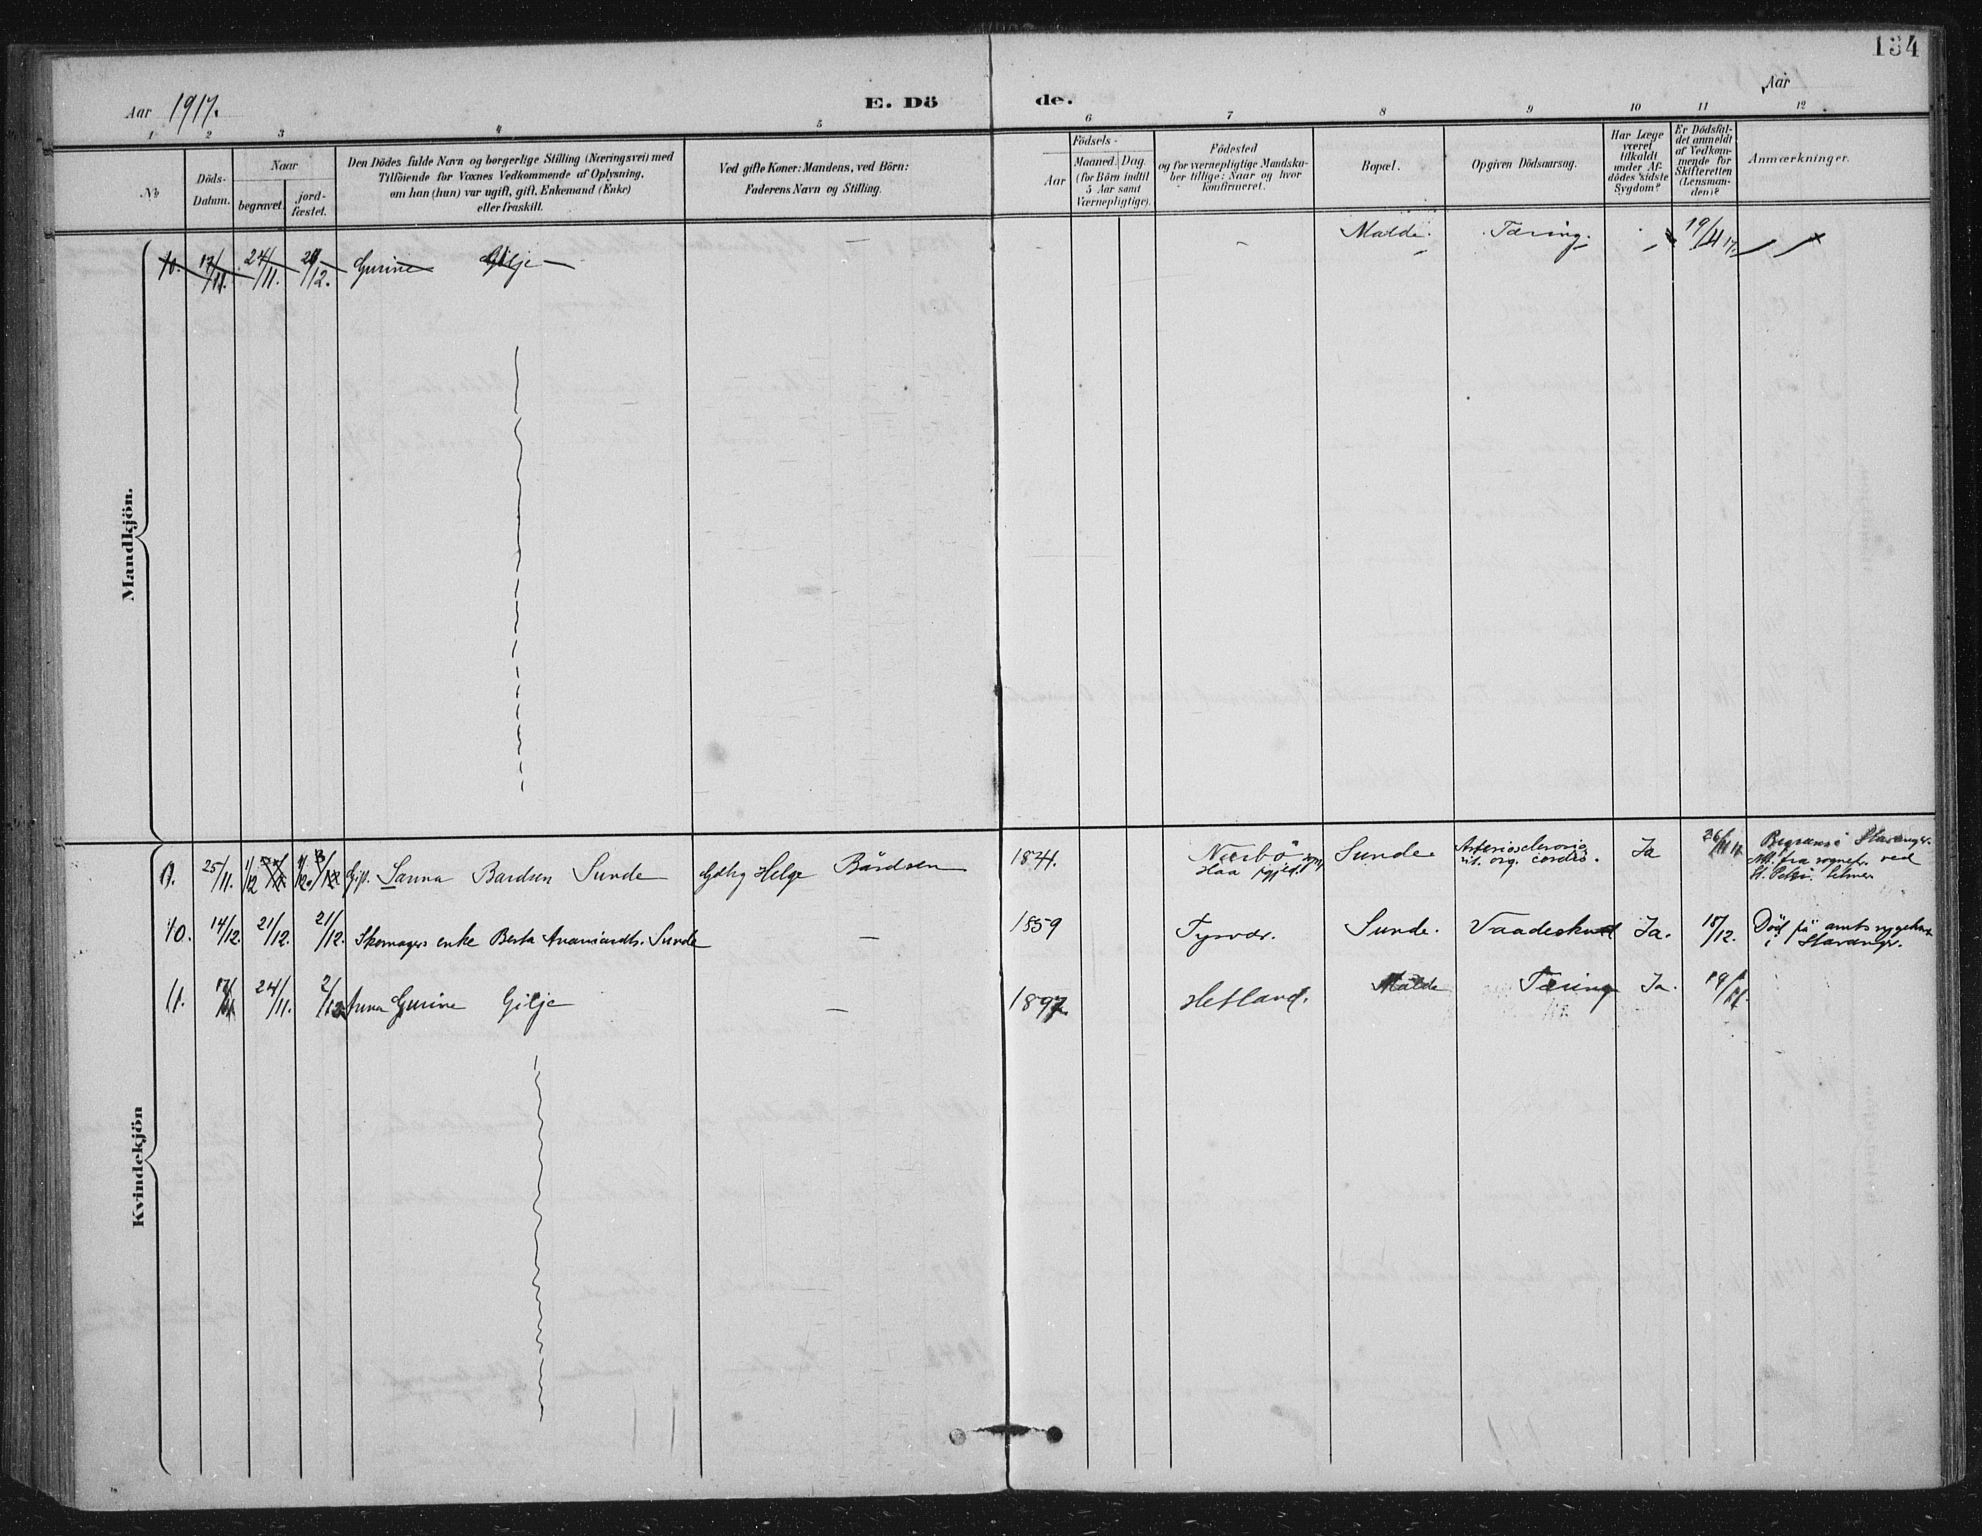 134
Aar 1917. E. Dö de. Aar
1 2 3 4 5 6 7 8 9 10 11 12
No
Döds-Datum.
Naar
begravet.
jord-fæstet.
Den Dödes fulde Navn og borgerlige Stilling (Næringsvei) med
Tilföiende for Voxnes Vedkommende af Oplysning,
om han (hun) var ugift, gift, Enkemand (Enke)
eller fraskilt.
Ved gifte Koner: Mandens, ved Börn:
Faderens Navn og Stilling.
Födsels-
Aar
Maaned. Dag.
(for Börn indtil
5 Aar samt
Værnepligtige).
Födested
og for værnepligtige Mandska-
ber tillige: Naar og hvor
konfirmeret.
Bopæl.
Opgiven Dödsaarsag.
Har Læge
været
tilkaldt
under Af-
dödes sidste
Sygdom?
Er Dödsfal-
det anmeldt
af Vedkom-
mende for
Skifteretten
(Lensman-
den)?
Anmærkninger.
Mandkjön.
10. 17/11. 24/11. 2/12. Gurine Gilje — — Malde. Tæring. 19/11 17.
Kvindekjön
9. 25/11. 1/12 1/12. Gip. Sanna Bardsen Sunde Gdbg Helge Bårdsen 1834. Nærbö sogn, Haa prgjeld. Sunde Arteriosclerosis vit. org. cordis. Ja 26/11 17. Begravet i Stavanger.
Att. fra sognepr. ved
St. Petri.
10. 14/12. 21/12. 21/12. Skomagers enke Berta Ananiasdtr. Sunde — 1859 Tysvær. Sunde. Vaadeskud Ja. 18/12. Död på amtssygehus
i Stavanger.
11. 17/11 24/11. 2/12 Anna Gurine Gilje — 1897 Hetland. Malde Tæring Ja. 19/11.